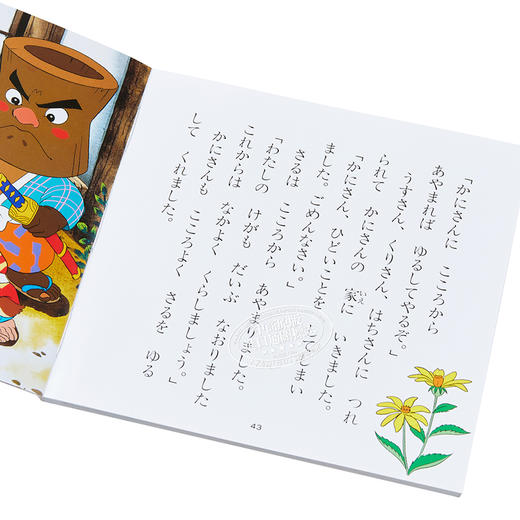 「かにさんに　こころから
あやまれば　ゆるしてやるぞ。」
うすさん、くりさん、はちさんに　つれ
られて　かにさんの　家に　いきました。
いえ
「かにさん、ひどいことを　してしまい
ました。ごめんなさい。」
さるは　こころから　あやまりました。
「わたしの　けがも　だいぶ　なおりました
これからは　なかよく　くらしましょう。」
かにさんも　こころよく　さるを　ゆる
して　くれました。
43